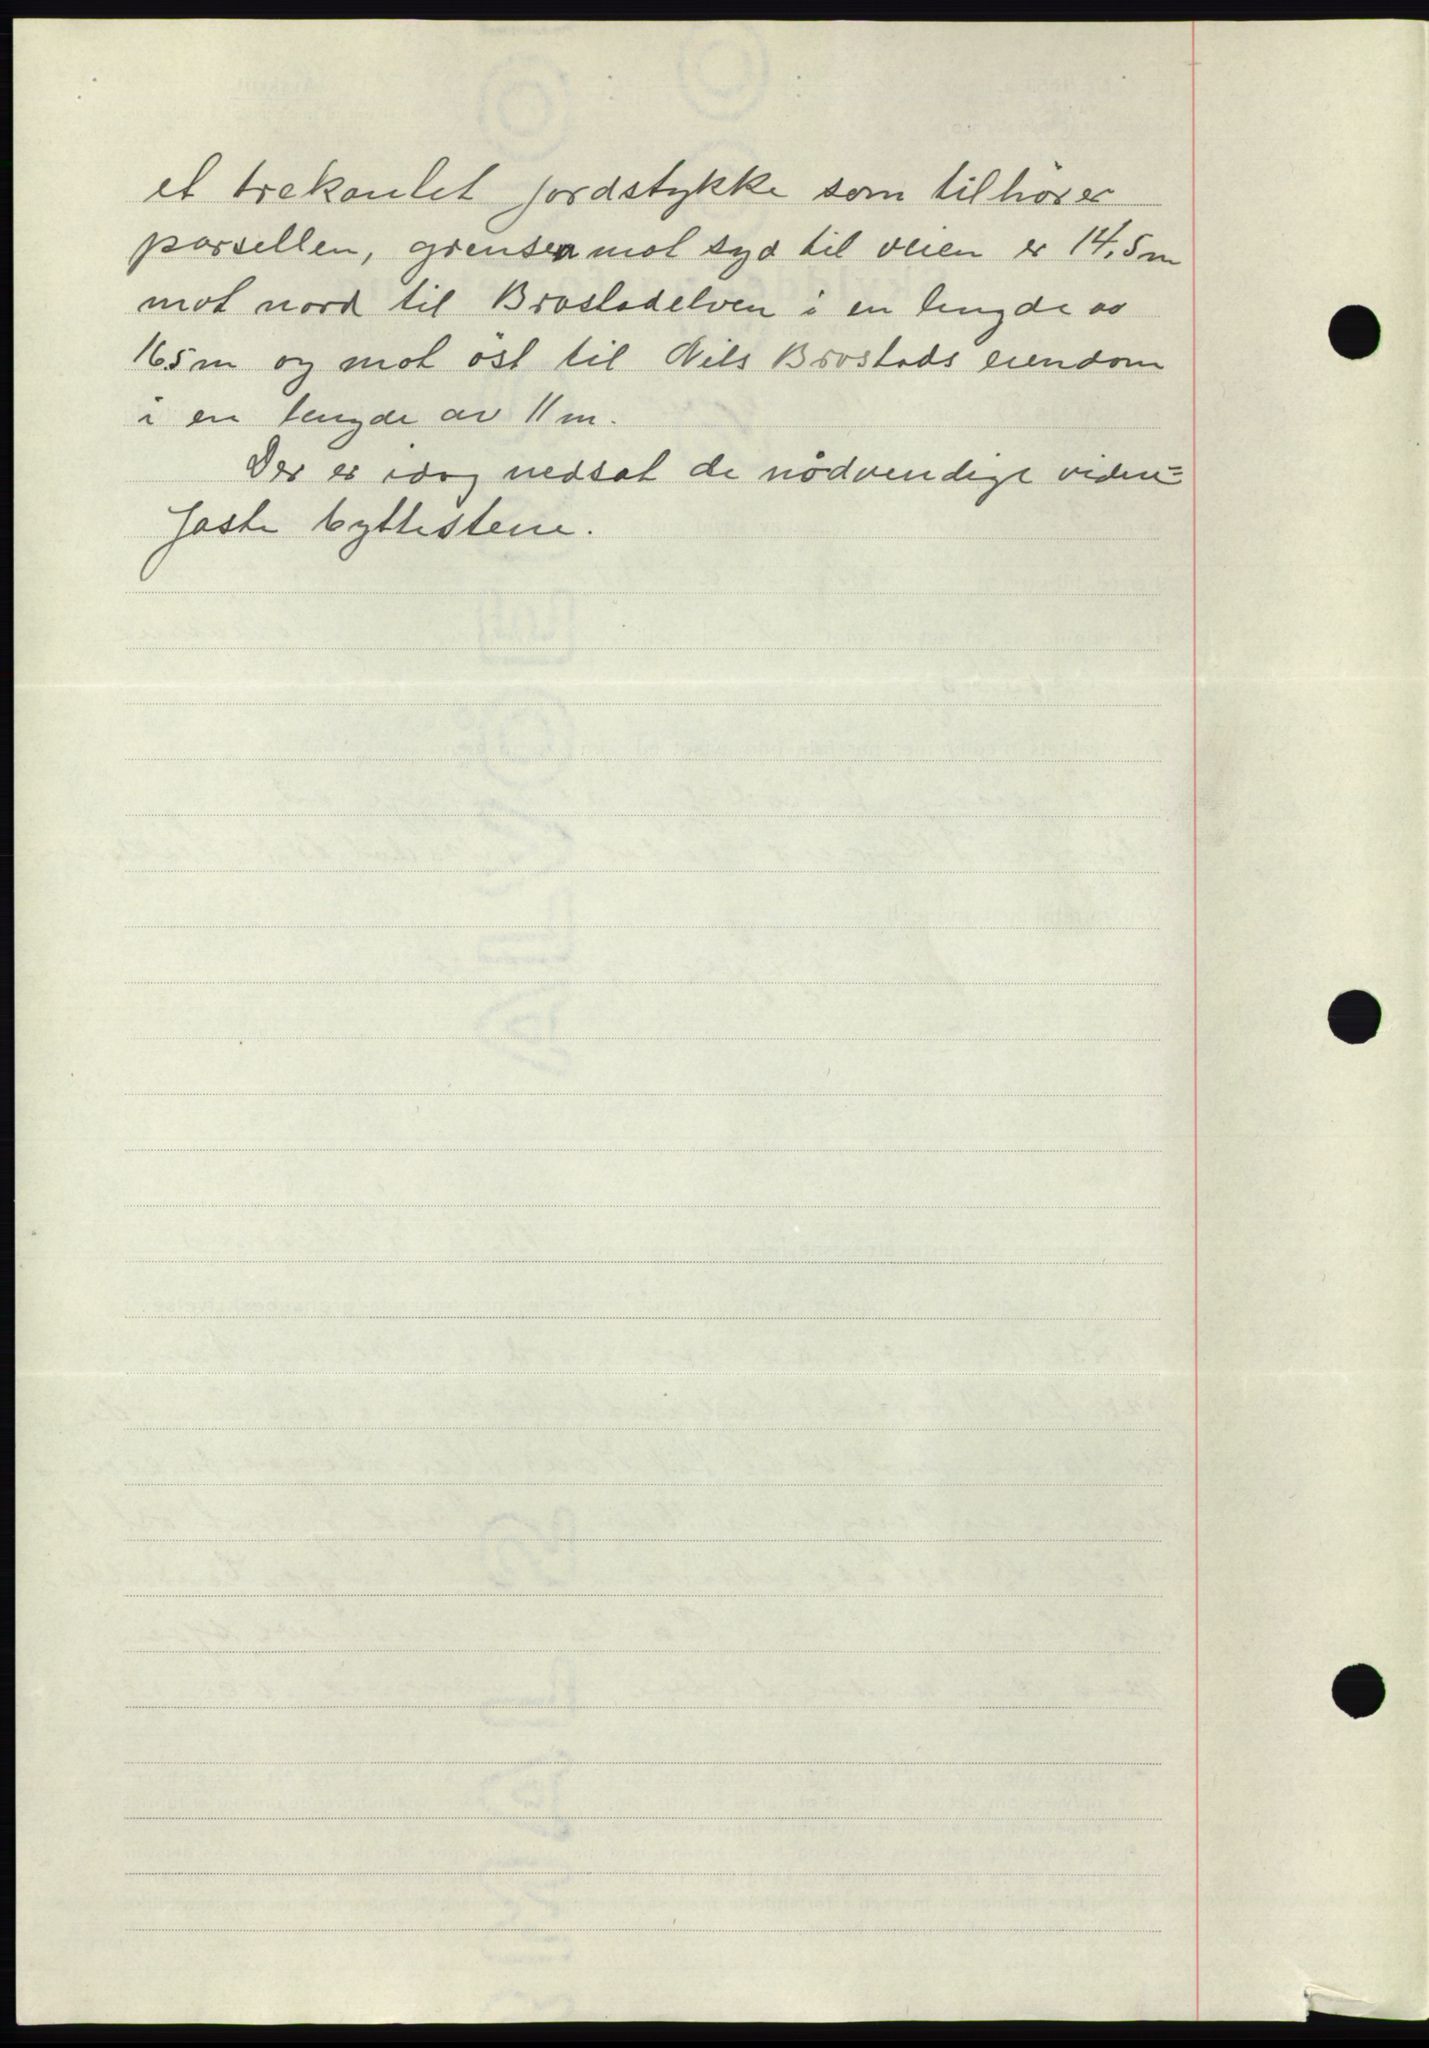 et trekantet jordstykke som tilhører
parsellen, grensen mot syd til veien er 14,5 m
mot nord til Brostadelven i en lengde av
16,5 m og mot øst til Nils Brostads eiendom
i en lengde av 11 m.
Der er idag nedsat de nødvendige viden=
faste byttestene.